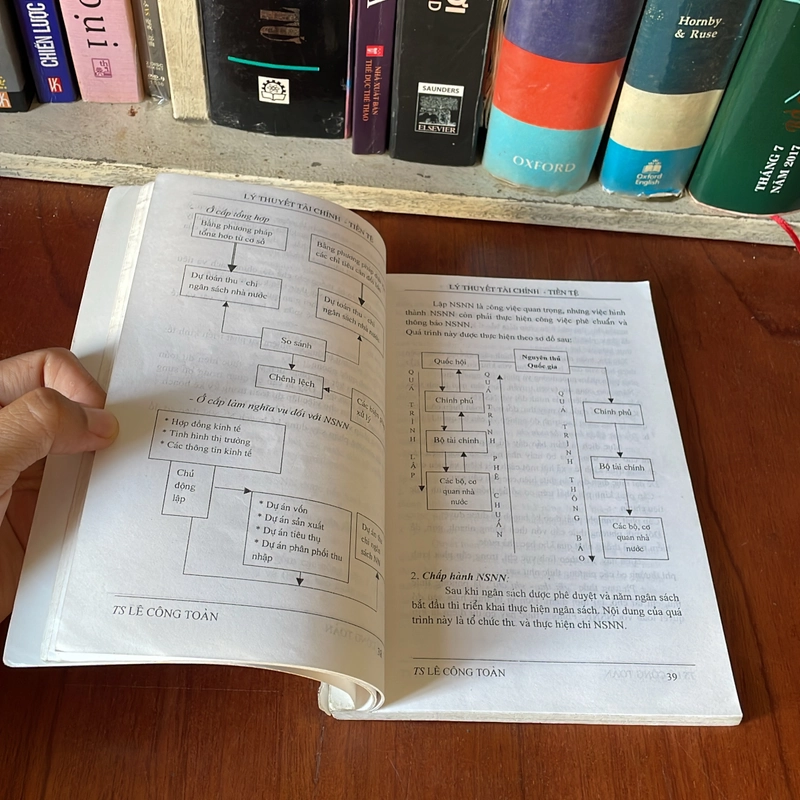 CHIẾN LƯỢC
NHÀ XUẤT BẢN
THỂ DỤC THỂ THAO
SAUNDERS
ELSEVIER
OXFORD
Hornby
& Ruse
Oxford
English
THÁNG 7
NĂM 2017
LÝ THUYẾT TÀI CHÍNH - TIỀN TỆ
- Ở cấp tổng hợp
Bằng phương pháp
tổng hợp từ cơ sở
Bằng phương pháp
các chỉ tiêu cân đối
Dự toán thu - chi
ngân sách nhà nước
Dự toán thu - chi
ngân sách nhà nước
So sánh
Chênh lệch
xử lý
- Ở cấp làm nghĩa vụ đối với NSNN
* Hợp đồng kinh tế
* Tình hình thị trường
* Các thông tin kinh tế
Chủ
động
lập
* Dự án vốn
* Dự án sản xuất
* Dự án tiêu thụ
* Dự án phân phối thu
nhập
TS LÊ CÔNG TOÀN
LÝ THUYẾT TÀI CHÍNH - TIỀN TỆ
Lập NSNN là công việc quan trọng, nhưng việc hình
thành NSNN còn phải thực hiện công việc phê chuẩn và
thông báo NSNN.
Quá trình này được thực hiện theo sơ đồ sau:
Quốc hội
Chính phủ
Bộ tài chính
Các bộ, cơ
quan nhà
nước
QUÁ TRÌNH LẬP
QUÁ TRÌNH PHÊ CHUẨN
Nguyên thủ
Quốc gia
QUÁ TRÌNH THÔNG BÁO
Chính phủ
Bộ tài chính
Các bộ, cơ
quan nhà
nước
2. Chấp hành NSNN:
Sau khi ngân sách được phê duyệt và năm ngân sách
bắt đầu thì triển khai thực hiện ngân sách. Nội dung của quá
trình này là tổ chức thu và thực hiện chi NSNN.
TS LÊ CÔNG TOÀN
39